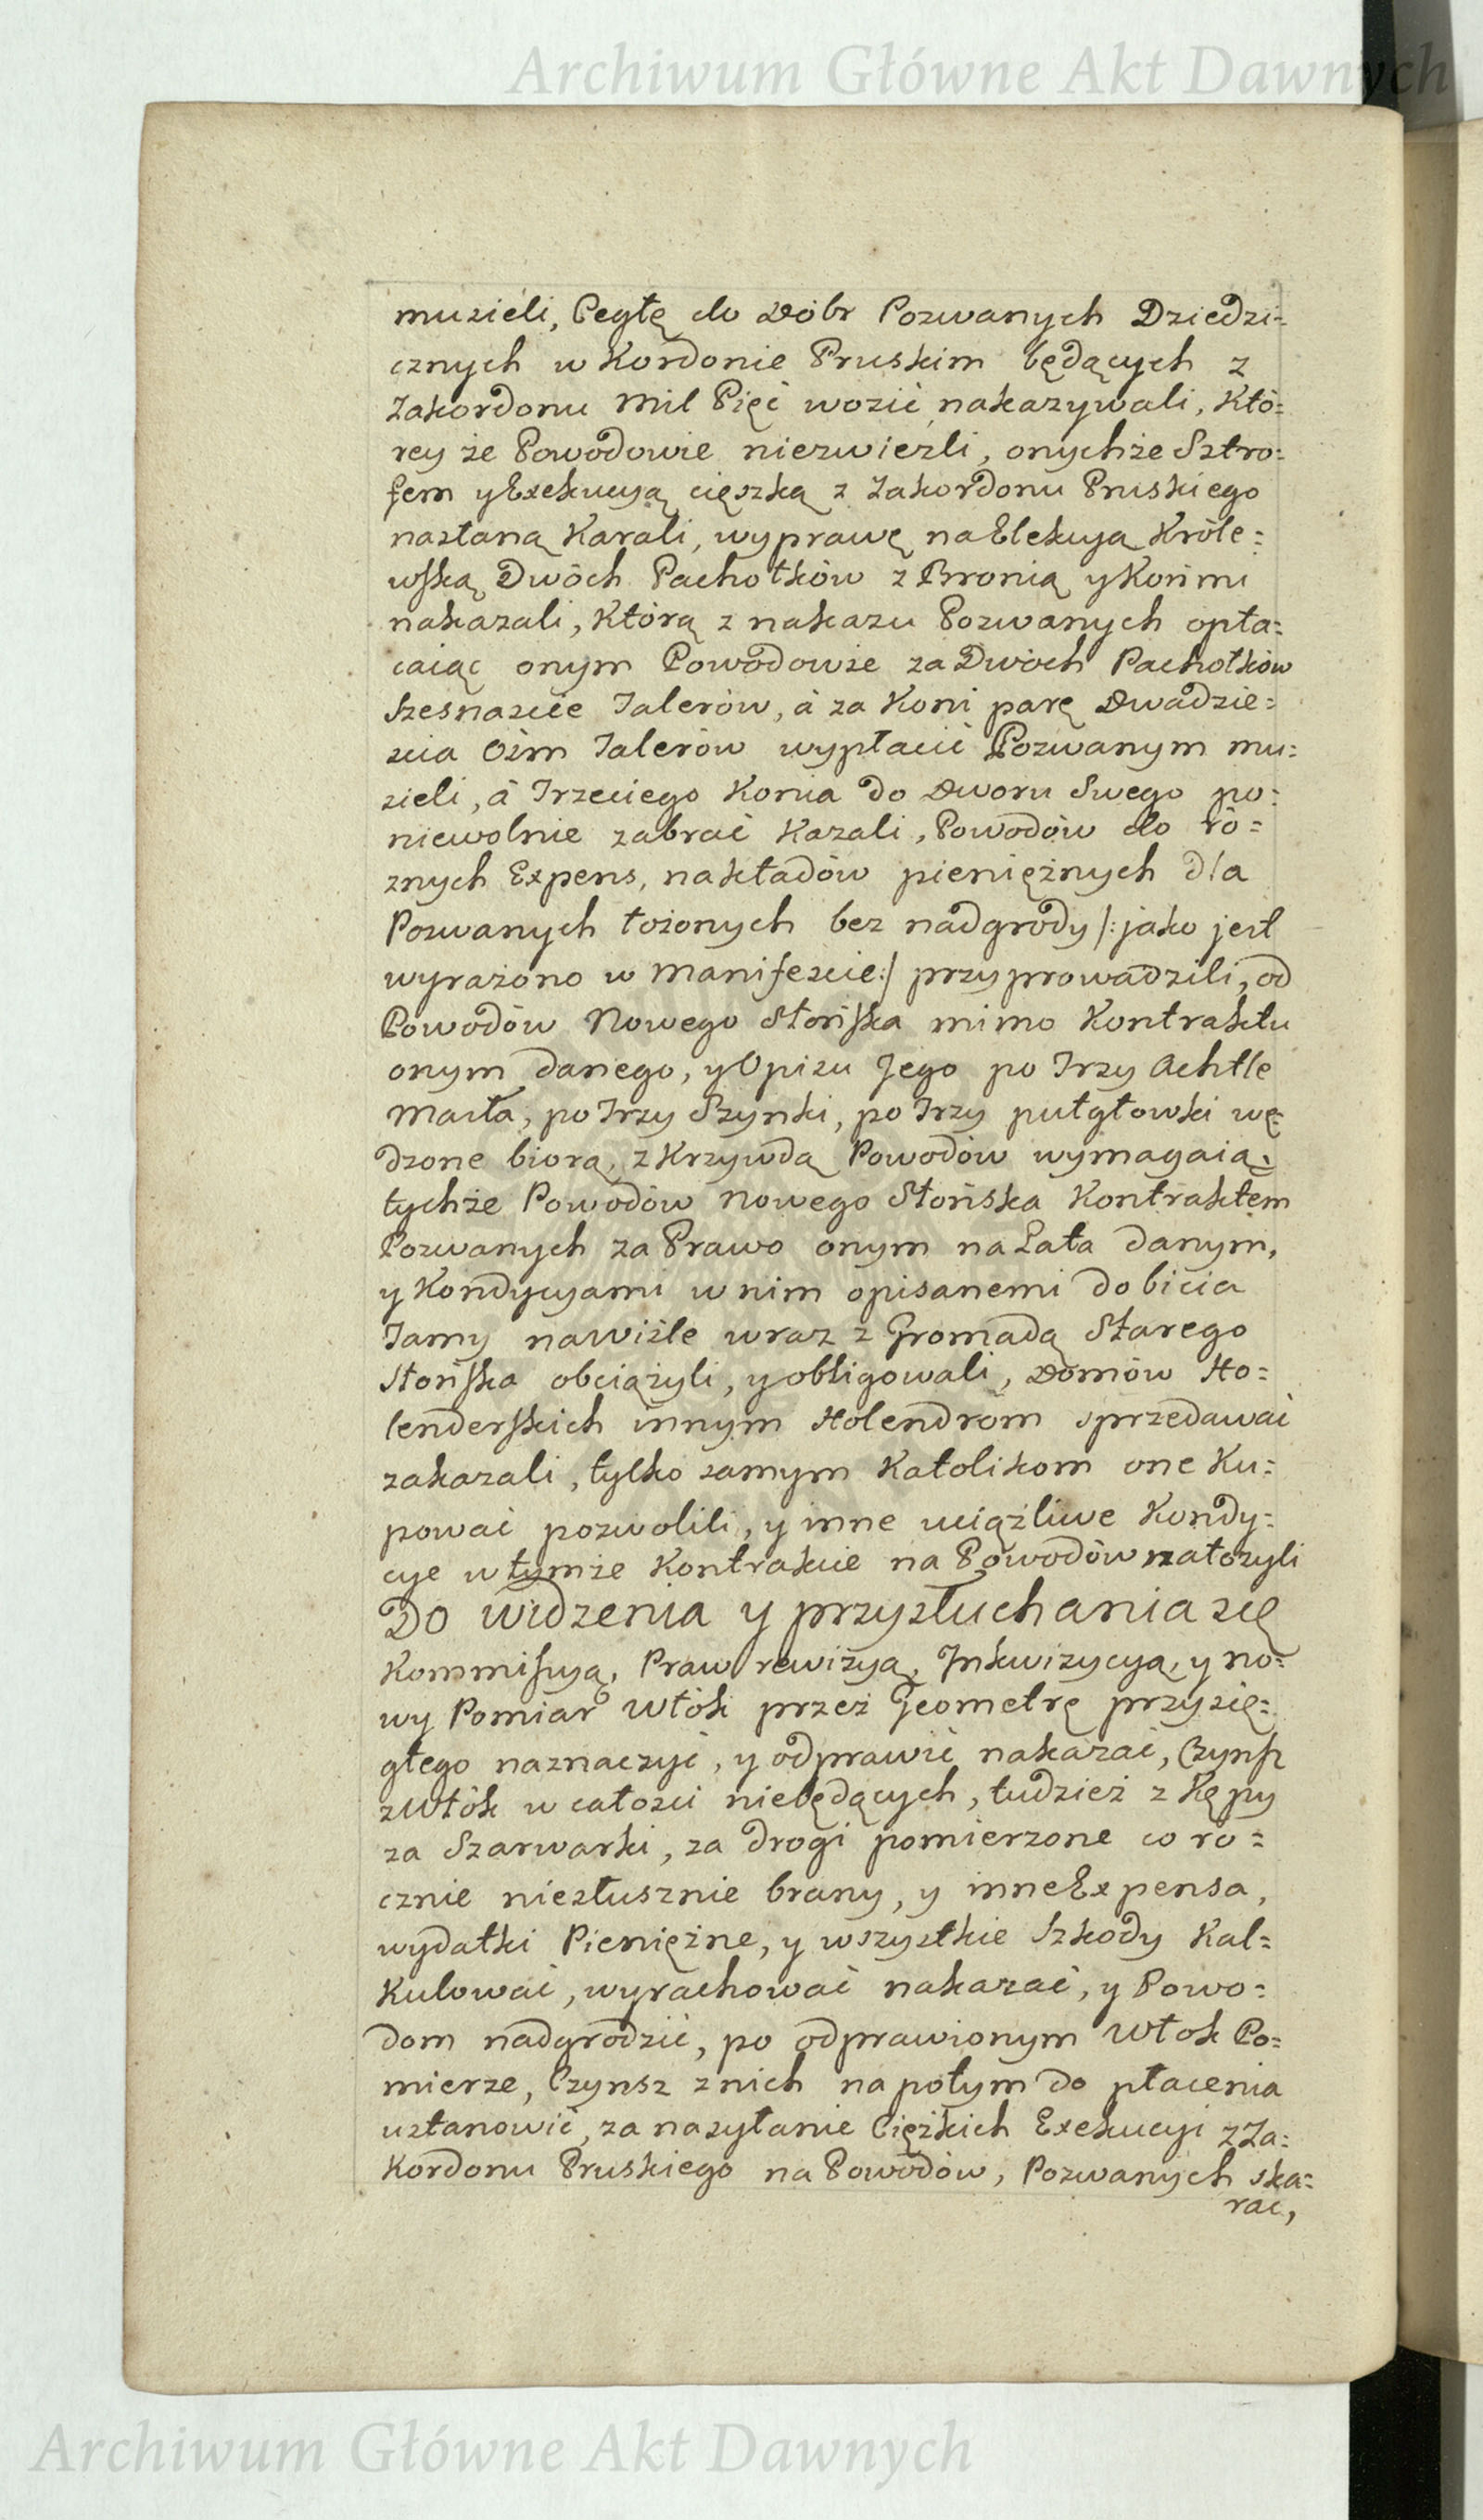 Archiwum Główne Akt Dawnych
musieli, Cegłę do Dóbr Pozwanych Dziedzi=
cznych w Kordonie Pruskim będących z
Zakordonu Mil Pięć wozić nakazywali, Któ=
rey że Powodowie niezwieźli, onychże Sztro=
fem y Exekucyą cięszką z Zakordonu Pruskiego
nasłaną Karali, wyprawę na Elekcyą Króle=
wską Dwóch Pachołków z Bronią y Końmi
nakazali, Którą z nakazu Pozwanych opła=
caiąc onym Powodowie za Dwóch Pachołków
Szesnaście Talerów, á za Koni parę Dwadzie=
scia Ośm Talerów wypłacić Pozwanym mu=
sieli, á Trzeciego Konia do Dworu Swego po=
niewolnie zabrać Kazali, Powodów do ró=
znych Expens, nakładów pieniężnych dla
Pozwanych łożonych bez nadgrody /: jako jest
wyrażono w Manifeście :/ przyprowadzili, od
Powodów Nowego Słońska mimo Kontraktu
onym danego, y Opisu Jego po Trzy Achtle
Masła, po Trzy Szynki, po Trzy pułgłowki wę=
dzone biorą, z Krzywdą Powodów wymagaią,
tychże Powodów Nowego Słońska Kontraktem
Pozwanych za Prawo onym na Lata danym,
y Kondycyami w nim opisanemi do bicia
Tamy na Wiśle wraz z Gromadą Starego
Słońska obciążyli, y obligowali, Domów Ho=
lenderskich innym Holendróm sprzedawać
zakazali, tylko samym Katolikom one Ku=
pować pozwolili, y inne uciążliwe Kondy=
cye w tymże Kontrakcie na Powodów nałożyli
Do widzenia y przysłuchania się
Kommissyą, Praw rewizyą, Inkwizycyą, y no=
wy Pomiar Włók przez Geometrę przysię=
głego naznaczyć, y odprawić nakazać, Czynsz
z Włók w całości niebędących, tudzież z Kępy
za Szarwarki, za drogi pomierzone co ro=
cznie niesłusznie brany, y inne Expensa,
wydatki Pieniężne, y wszystkie Szkody Kal=
Kulować, wyrachować nakazać, y Powo=
dom nadgrodzić, po odprawionym Włok Po=
mierze, Czynsz z nich na potym do płacenia
ustanowić, za nasyłanie Ciężkich Exekucyi z Za=
Kordonu Pruskiego na Powodów, Pozwanych ska=
rac,
Archiwum Główne Akt Dawnych